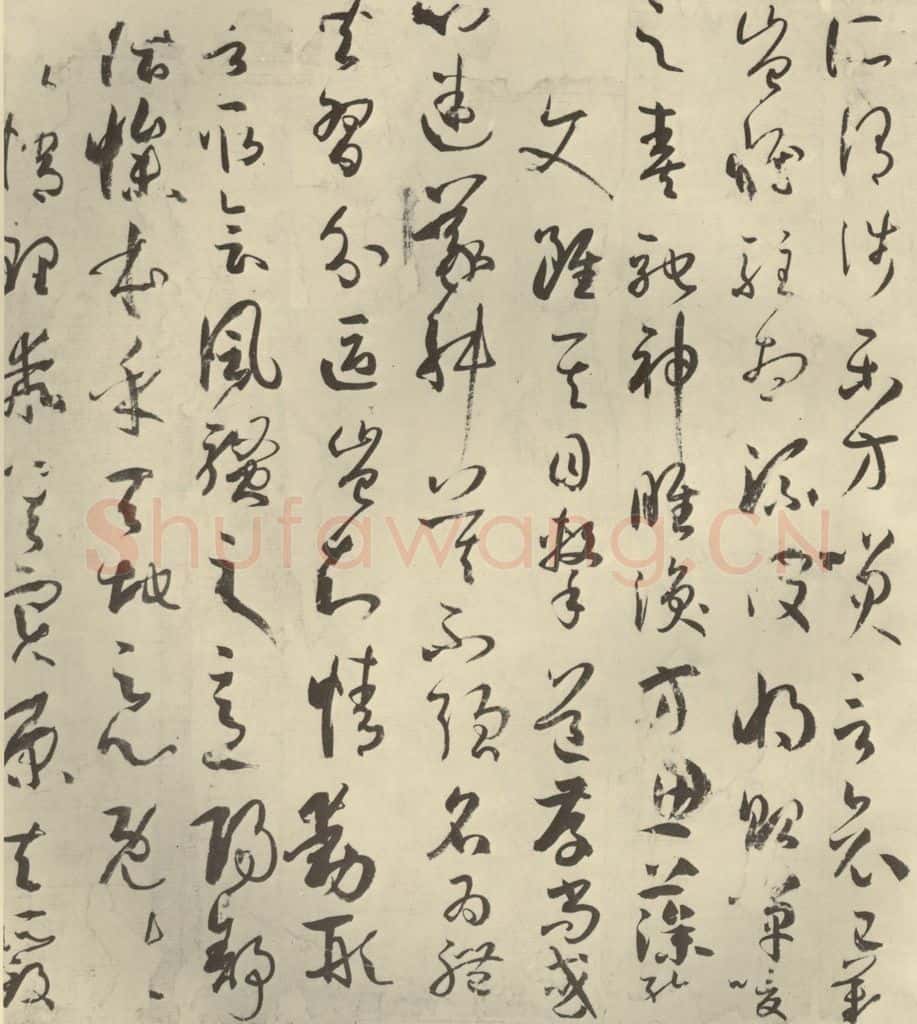 所謂涉樂方笑言哀已歎
豈惟駐想流波將貽嘽喭
之奏馳神睢渙方思藻繪
文雖其目擊道存尚或
心迷議舛莫不強名為體
共習分區豈知情動形
言取會風騷之意陽舒
陰慘本乎天地之心既
情理乖其實原夫所致
Shufawang.CN